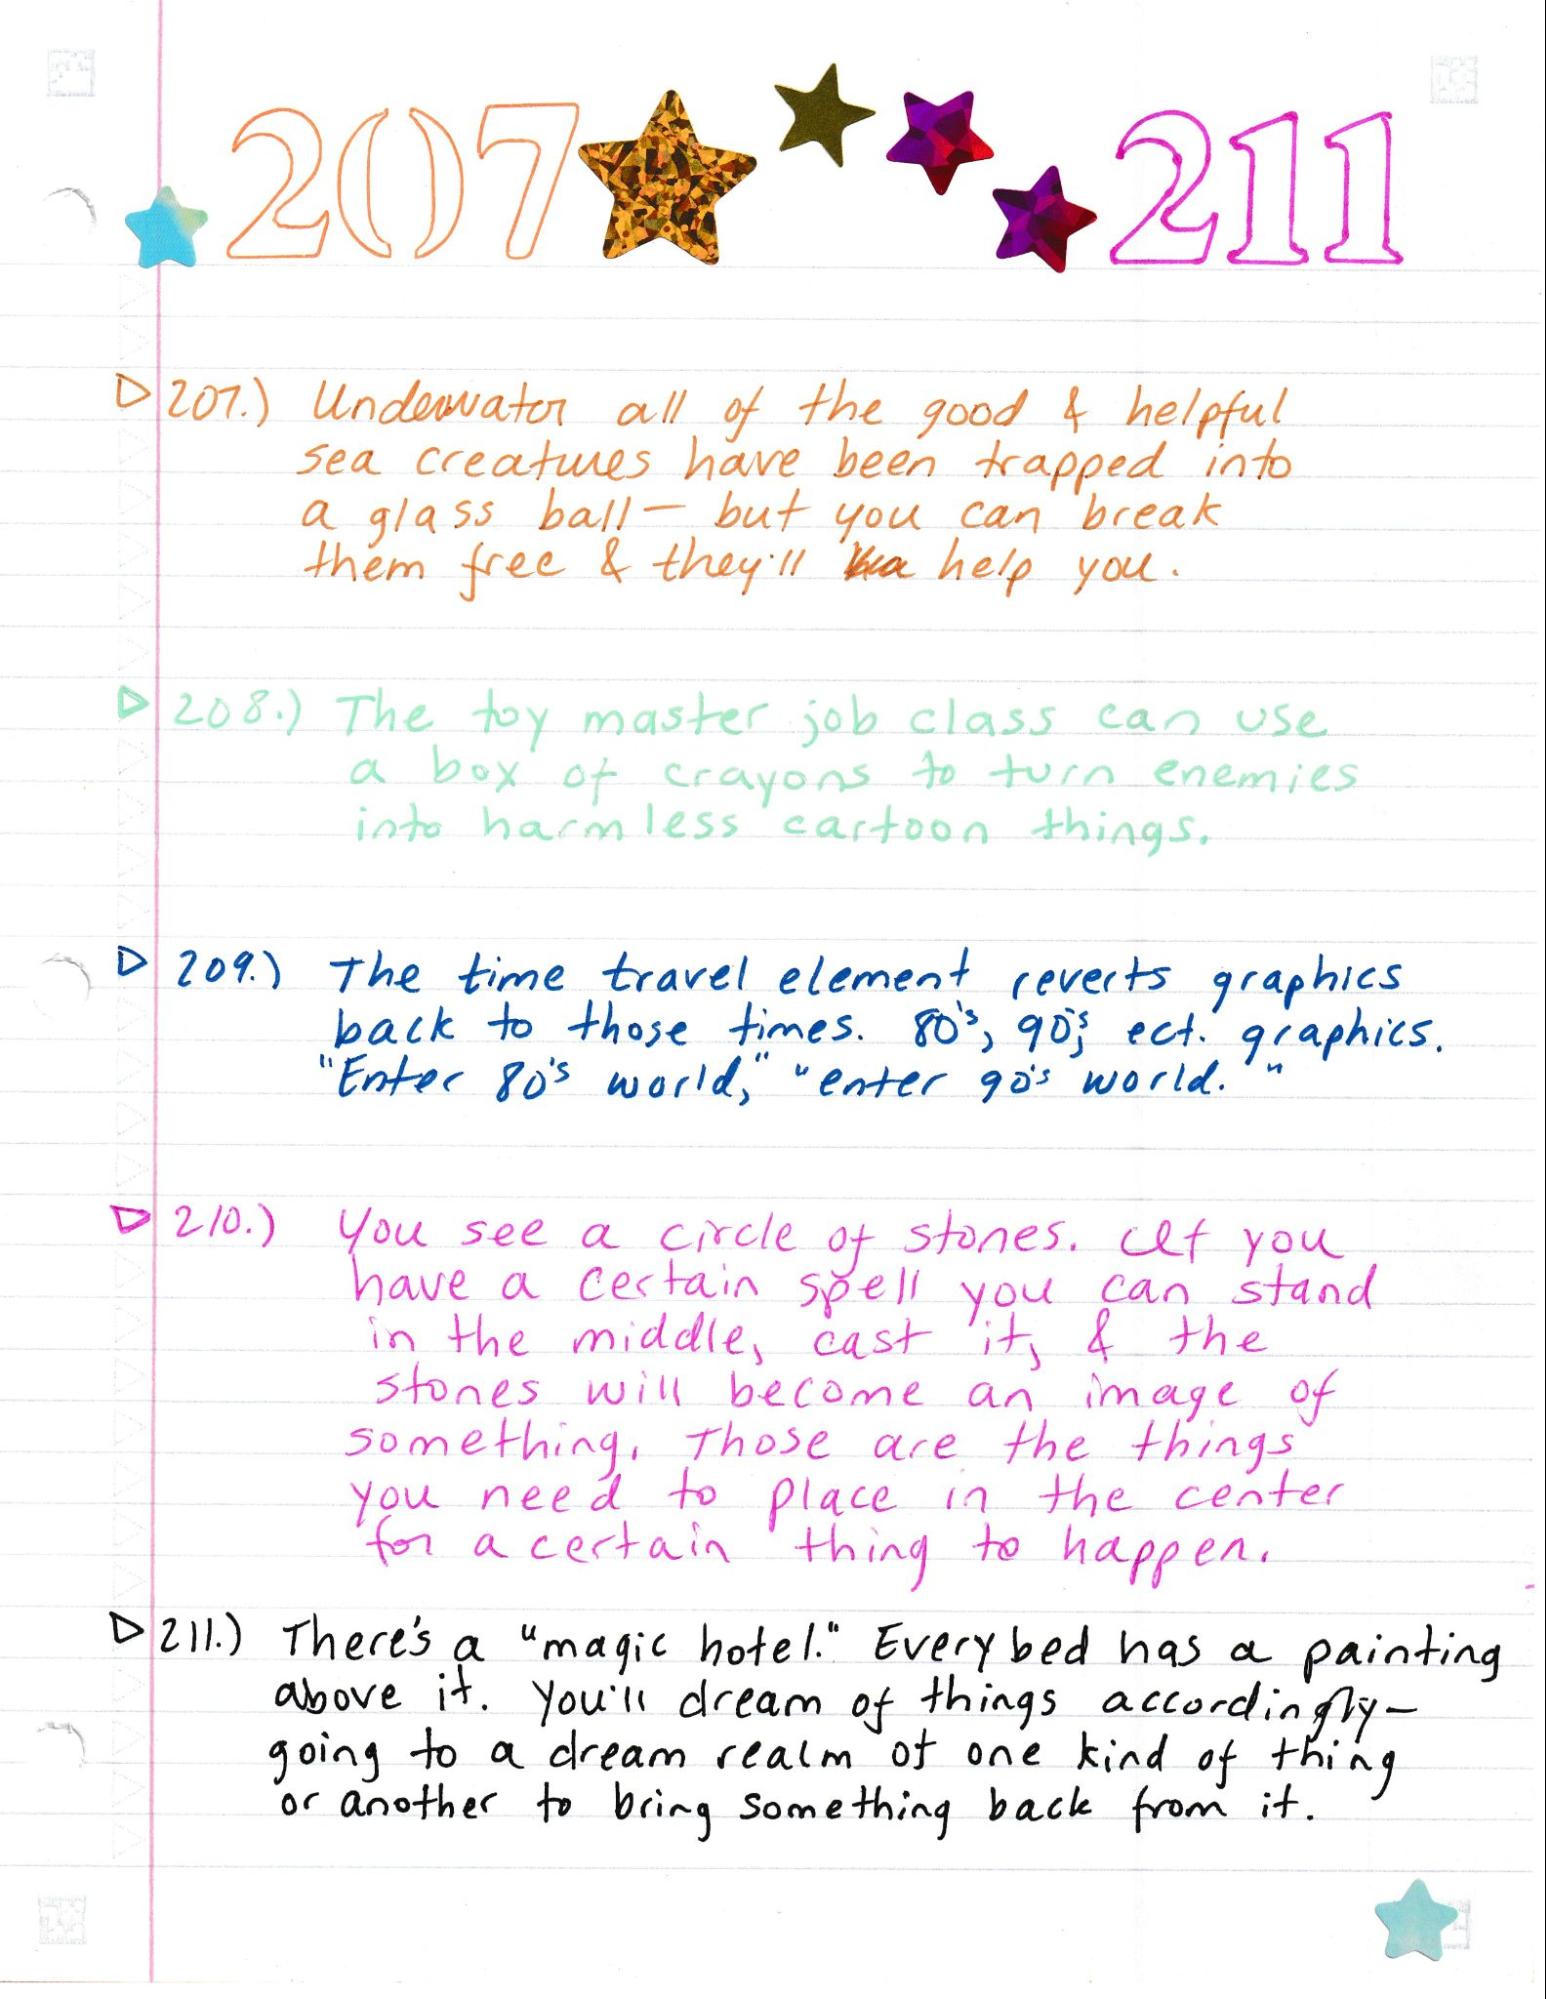 207 211
207.) Underwater all of the good & helpful
sea creatures have been trapped into
a glass ball — but you can break
them free & they'll help you.
208.) The toy master job class can use
a box of crayons to turn enemies
into harmless cartoon things.
209.) The time travel element reverts graphics
back to those times. 80's, 90's, ect. graphics.
"Enter 80's world," "enter 90's world."
210.) You see a circle of stones. If you
have a certain spell you can stand
in the middle, cast it, & the
stones will become an image of
something. Those are the things
you need to place in the center
for a certain thing to happen.
211.) There's a "magic hotel." Every bed has a painting
above it. You'll dream of things accordingly—
going to a dream realm of one kind of thing
or another to bring something back from it.